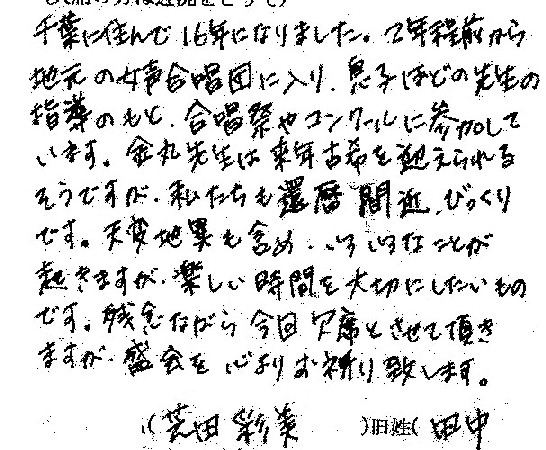 千葉に住んで16年になりました。2年程前から
地元の女声合唱団に入り、息子ほどの先生の
指導のもと、合唱祭やコンクールに参加して
います。金丸先生は来年古希を迎えられる
そうですが、私たちも還暦間近、びっくり
です。天変地異も含め、いろいろなことが
起きますが、楽しい時間を大切にしたいもの
です。残念ながら今回欠席とさせて頂き
ますが、盛会を心よりお祈り致します。
(荒田 彩美 )旧姓(田中